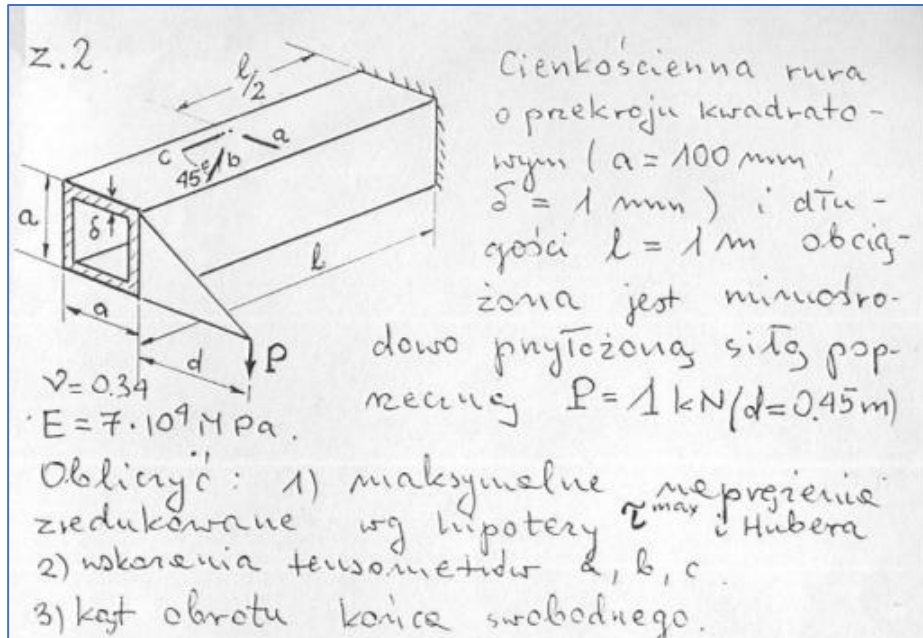 z.2.
l/2
a
c
b
45°
a
δ
l
a
d
P
ν = 0.34
E = 7·10⁴ MPa.
Cienkościenna rura
o przekroju kwadrato-
wym (a = 100 mm,
δ = 1 mm) i dłu-
gości l = 1 m obcią-
żona jest mimośro-
dowo przyłożoną siłą pop-
rzeczną P = 1 kN (d = 0.45 m)
Obliczyć: 1) maksymalne naprężenia
zredukowane wg hipotezy τmax i Hubera
2) wskazania tensometrów a, b, c
3) kąt obrotu końca swobodnego.